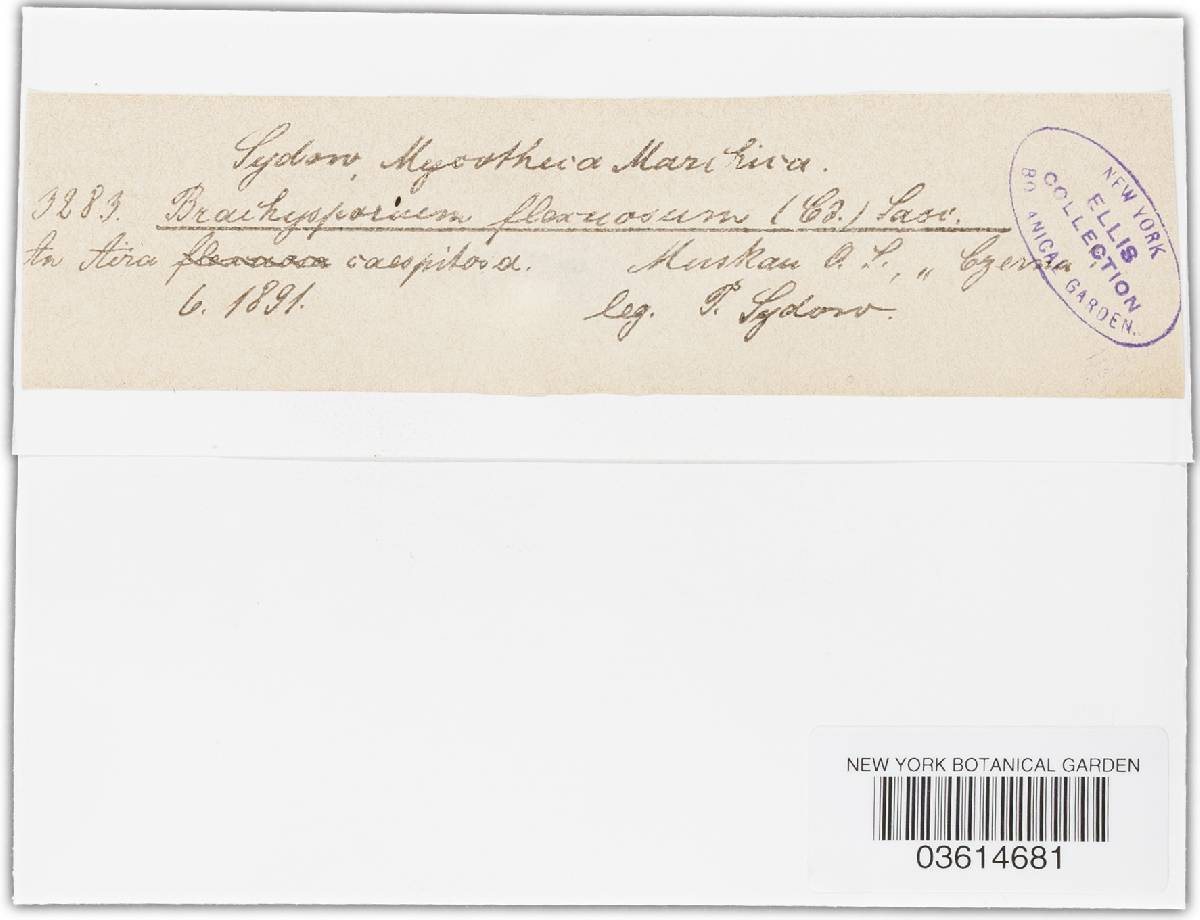 Sydow, Mycotheca Marchica.
3283. Brachysporium flexuosum (Cd.) Sacc.
An Aira flexuosa caespitosa. Muskau O. L., „ Czerna".
6. 1891. leg. P. Sydow.
NEW YORK
ELLIS
COLLECTION
BOTANICAL GARDEN.
NEW YORK BOTANICAL GARDEN
03614681